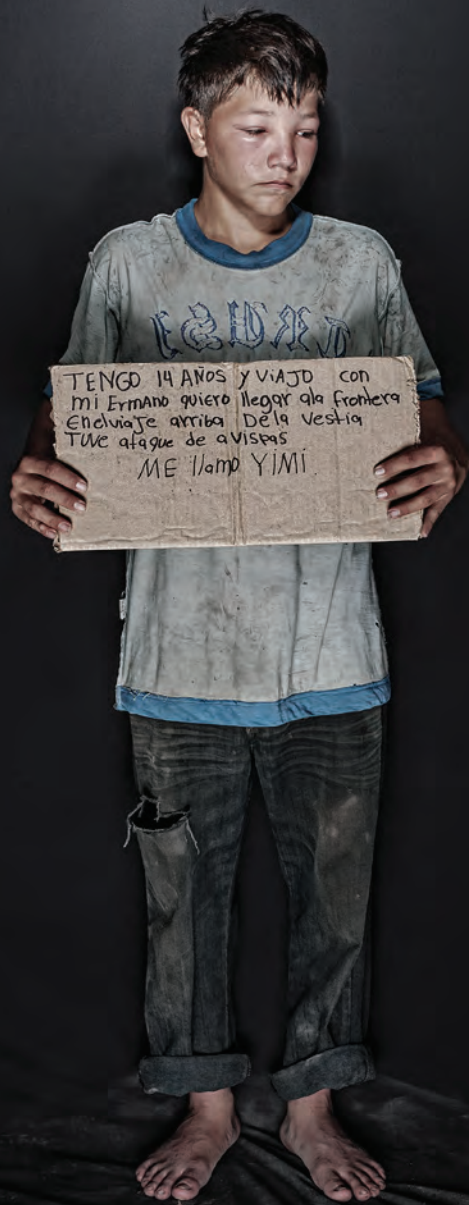 TENGO 14 AÑOS y ViAJO con
mi Ermano quiero llegar ala frontera
Enelviaje arriba Dela vestia
TUVe ataque de avispas
ME llamo YIMI